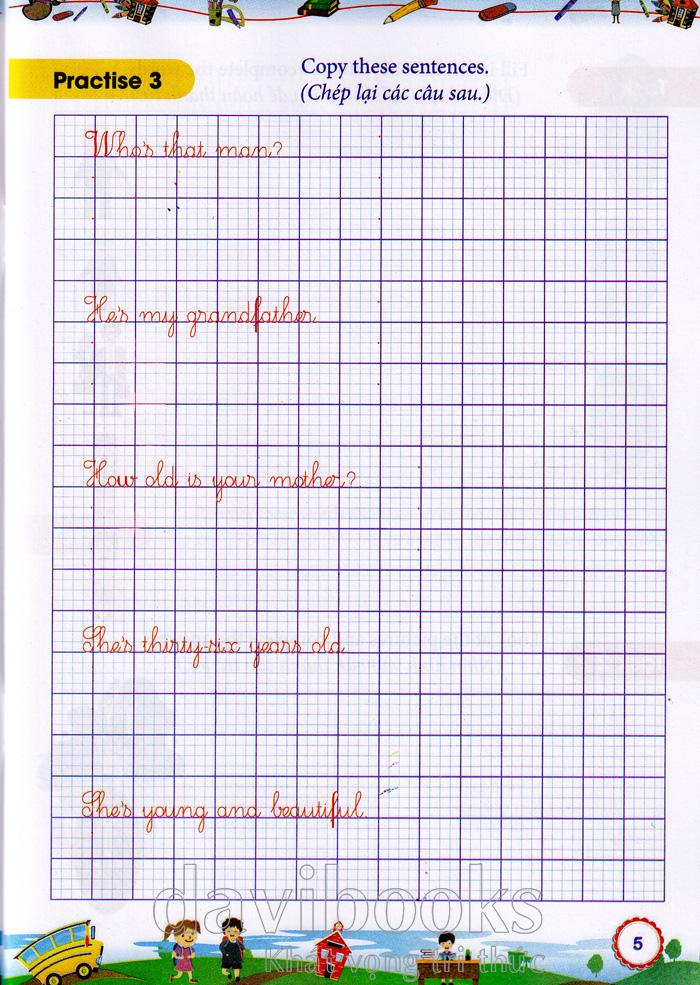 Practise 3
Copy these sentences.
(Chép lại các câu sau.)
Who's that man?
He's my grandfather.
How old is your mother?
She's thirty-six years old.
She's young and beautiful.
davibooks
Khát vọng tri thức
5